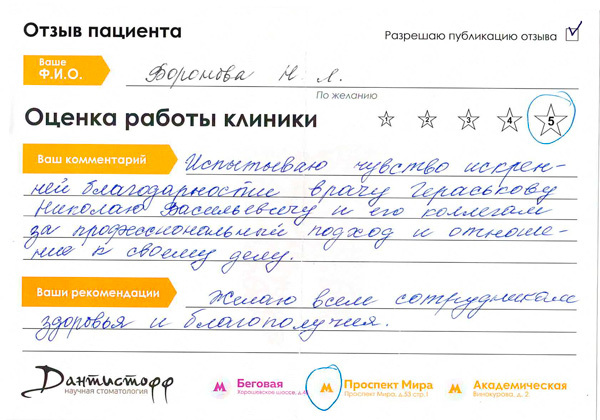 Отзыв пациента
Разрешаю публикацию отзыва
Ваше
Ф.И.О.
Воронова Н. Л.
По желанию
Оценка работы клиники
1 2 3 4 5
Ваш комментарий
Испытываю чувство искрен-
ней благодарности врачу Гераськову
Николаю Васильевичу и его коллегам
за профессиональный подход и отноше-
ние к своему делу.
Ваши рекомендации
Желаю всем сотрудникам
здоровья и благополучия.
Дантистофф
научная стоматология
Беговая
Хорошевское шоссе, д.
Проспект Мира
Проспект Мира, д.
Академическая
Винокурова, д. 2